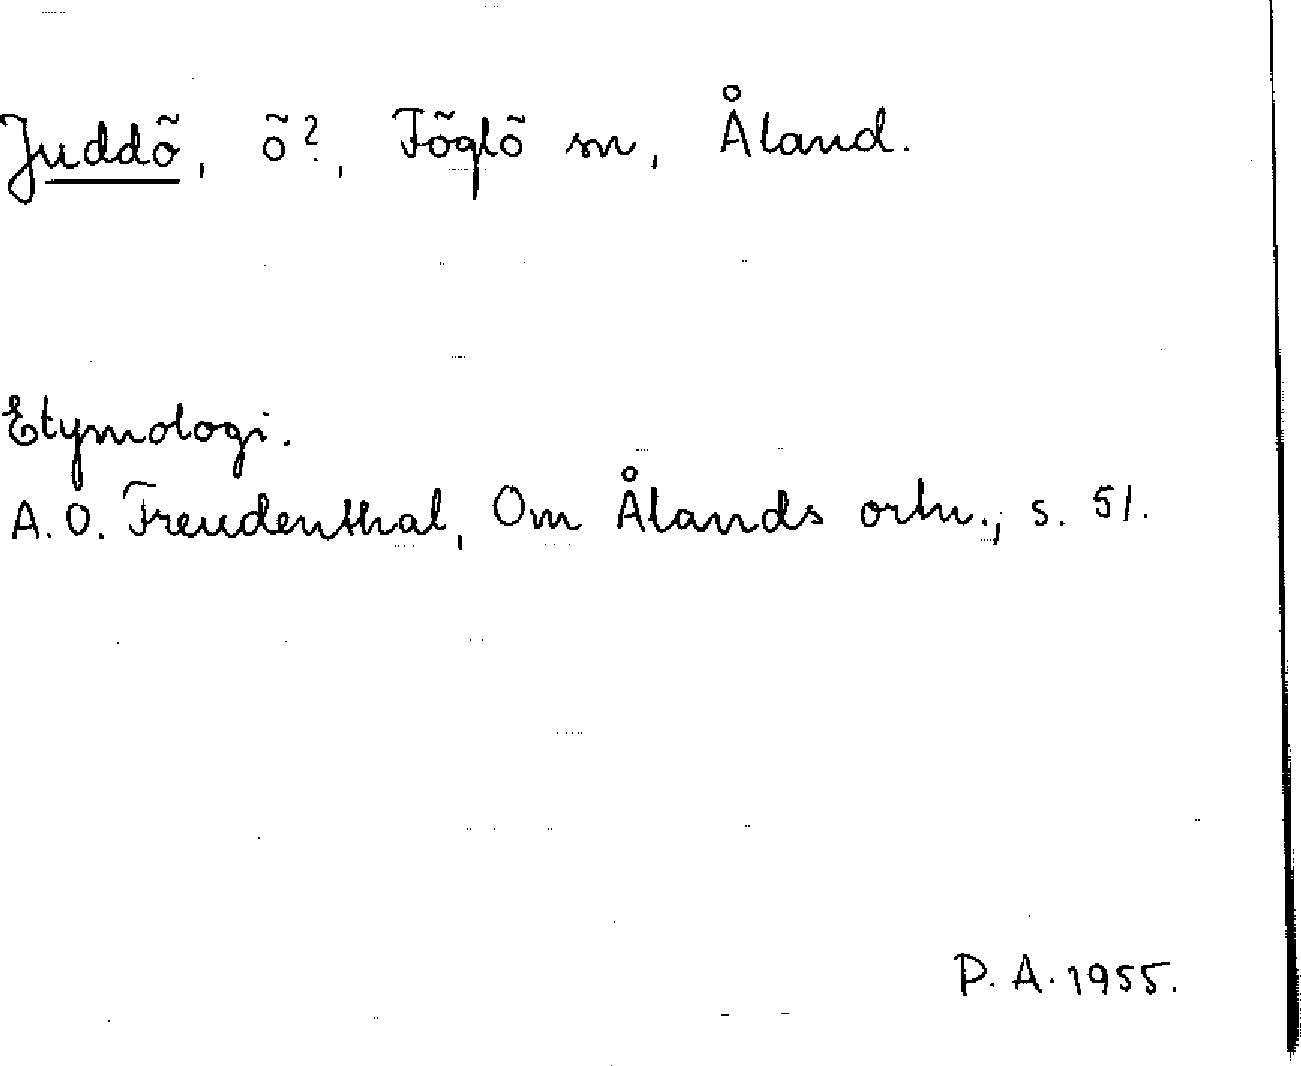 Juddö, ö?, Föglö sn, Åland.
Etymologi.
A.O. Freudenthal, Om Ålands ortn., s. 51.
P.A. 1955.